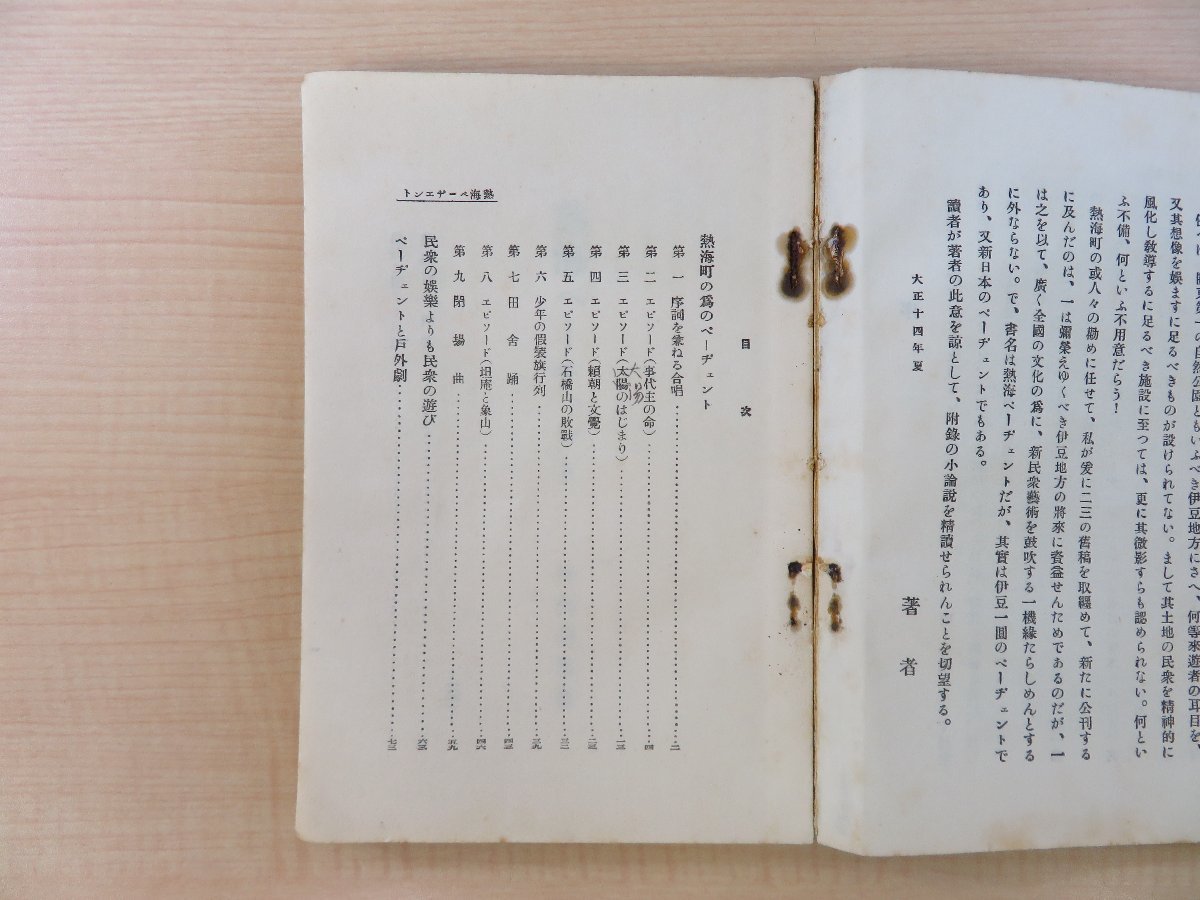 又其想像を娯ますに足るべきものが設けられてない。まして其土地の民衆を精神的に
風化し敎導するに足るべき施設に至つては、更に其微影すらも認められない。何とい
ふ不備、何といふ不用意だらう！
熱海町の或人々の勸めに任せて、私が爰に二三の舊稿を取纒めて、新たに公刊する
に及んだのは、一は彌榮えゆくべき伊豆地方の將來に資益せんためであるのだが、一
は之を以て、廣く全國の文化の爲に、新民衆藝術を鼓吹する一機緣たらしめんとする
に外ならない。で、書名は熱海ページェントだが、其實は伊豆一圓のページェントで
あり、又新日本のページェントでもある。
讀者が著者の此意を諒として、附錄の小論説を精讀せられんことを切望する。
大正十四年夏
著者
目次
熱海町の爲のページェント
第一 序詞を兼ねる合唱‥‥‥二
第二 エピソード(事代主の命)‥‥‥四
第三 エピソード(太陽のはじまり)‥‥‥一三
大湯
第四 エピソード(賴朝と文覺)‥‥‥二三
第五 エピソード(石橋山の敗戰)‥‥‥三二
第六 少年の假裝旗行列‥‥‥三九
第七 田舍踊‥‥‥四三
第八 エピソード(坦庵と象山)‥‥‥四六
第九 閉場曲‥‥‥五九
民衆の娯樂よりも民衆の遊び‥‥‥六三
ページェントと戸外劇‥‥‥七三
熱海ページエント